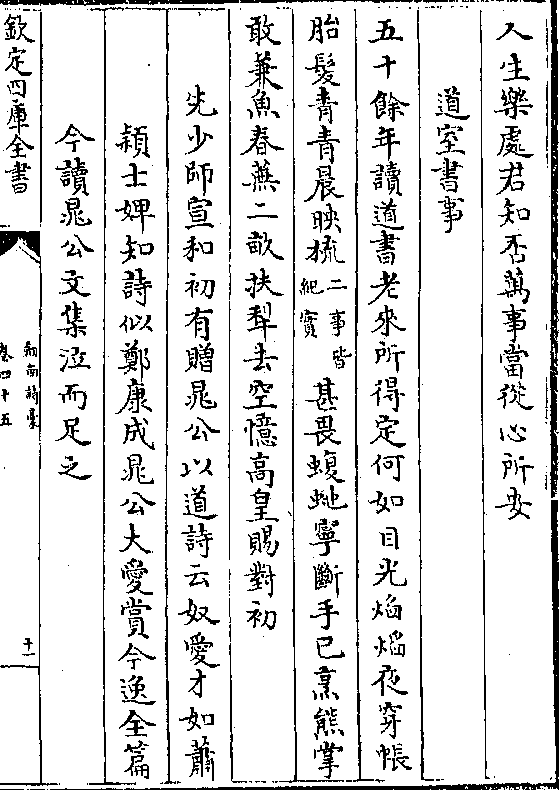 人生樂處君知否萬事當從心所安
道室書事
五十餘年讀道書老來所得定何如目光焰焰夜穿帳
胎髮青青晨映梳二事皆紀實甚畏蝮虵寧斷手已烹熊掌
敢兼魚春蕪二畝扶犁去空憶高皇賜對初
先少師宣和初有贈晁公以道詩云奴愛才如蕭
穎士婢知詩似鄭康成晁公大愛賞今逸全篇
今讀晁公文集泣而足之
欽定四庫全書
劍南詩稾
卷四十五
十一